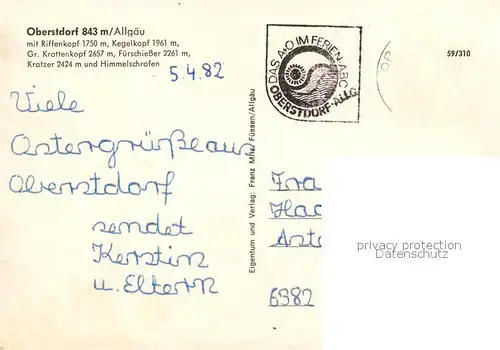 Oberstdorf 843 m/Allgäu
mit Riffenkopf 1750 m, Kegelkopf 1961 m,
Gr. Krottenkopf 2657 m, Fürschießer 2261 m,
Kratzer 2424 m und Himmelschrofen
5.4.82
Viele
Ostergrüße aus
Oberstdorf
sendet
Kerstin
u. Eltern
Eigentum und Verlag: Franz Milz, Füssen/Allgäu
DAS A+O IM FERIEN-ABC
OBERSTDORF-ALLG.
59/310
Fra
Hac
Ast
6382
privacy protection
Datenschutz